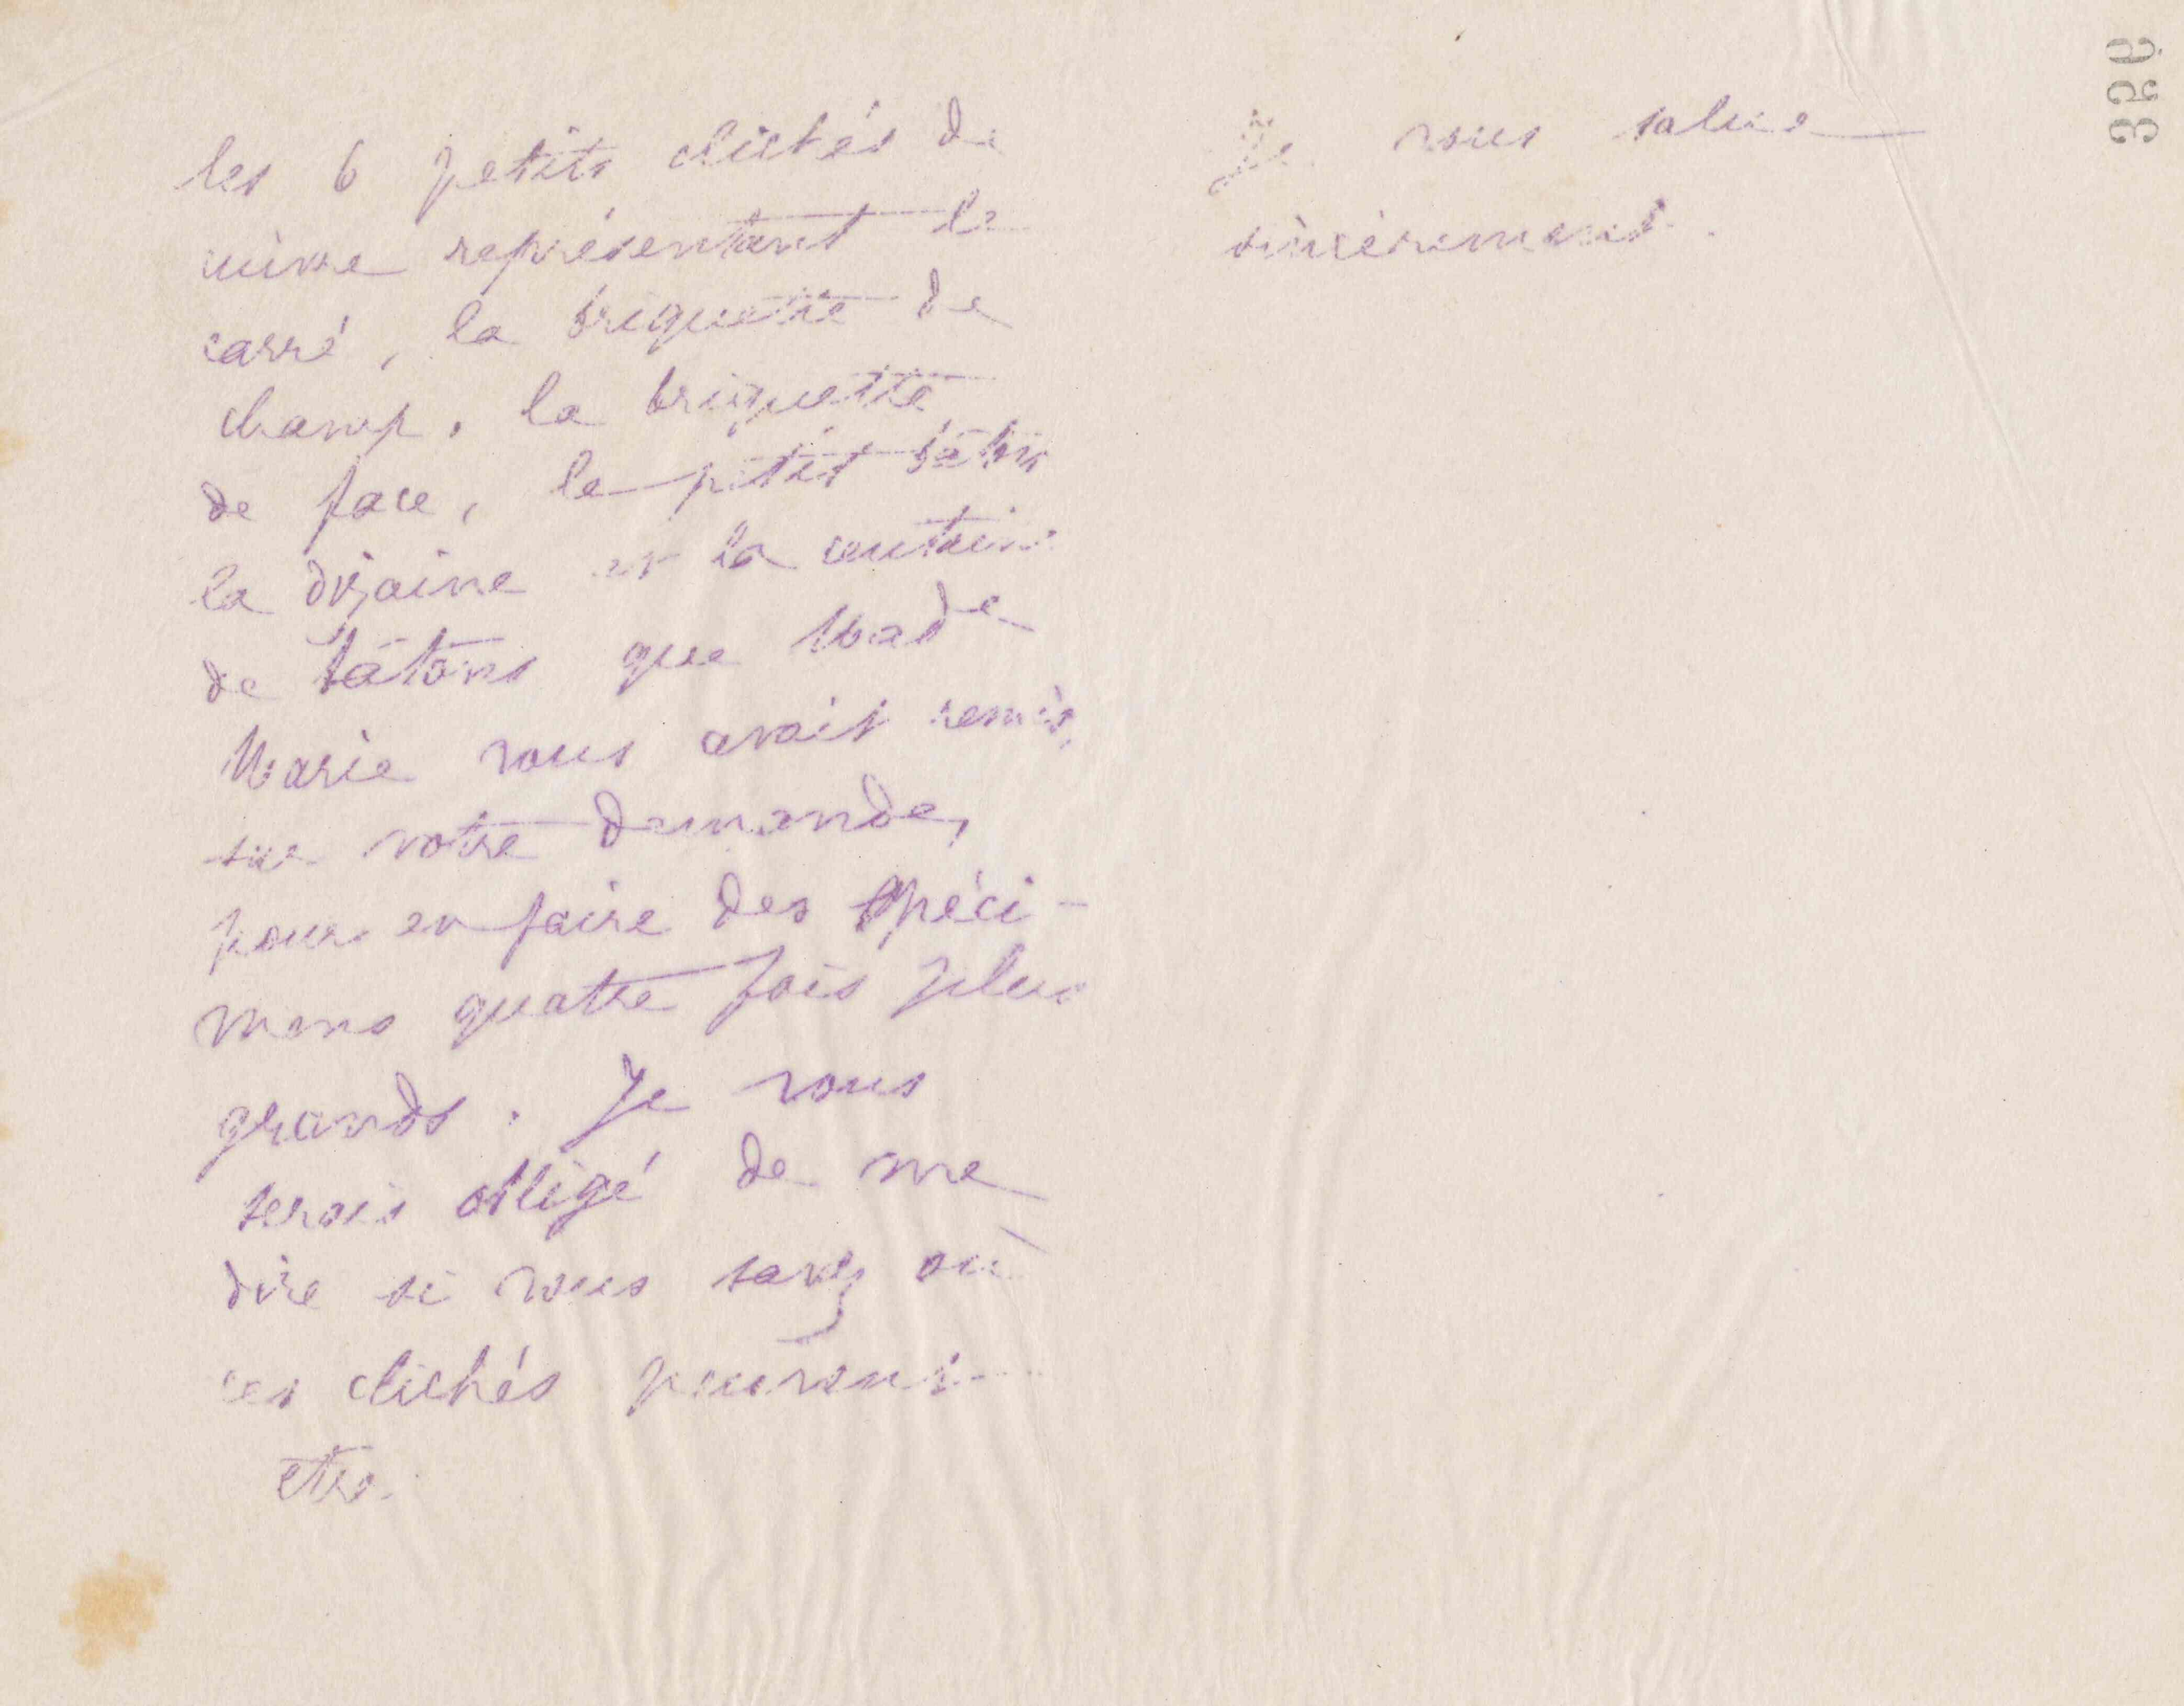 les 6 petits clichés de
cuivre représentant le
carré, la briquette de
champ, la briquette
de face, le petit bâton
la dizaine et la centaine
de bâtons que Made
Marie vous avait remis,
sur votre demande,
pour en faire des spéci-
mens quatre fois plus
grands. Je vous
serais obligé de me
dire si vous savez où
ces clichés peuvent
etre.
Je vous salue
sincèrement.
356